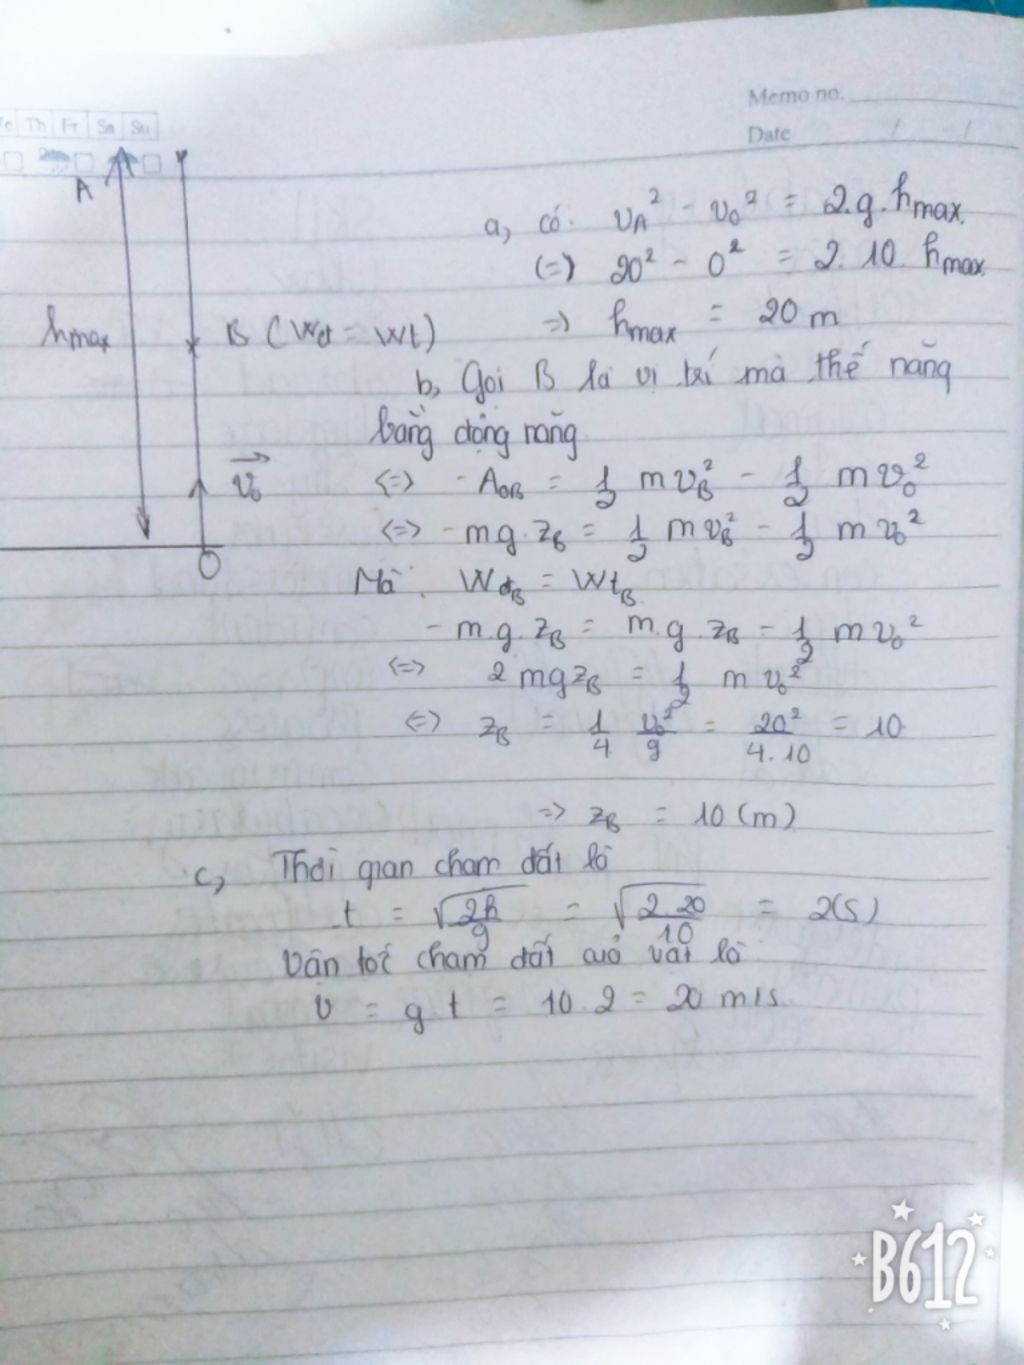 Memo no.
Date / /
Th Fr Sa Su
A
a, có: v_A² - v_0² = 2.g.h_max
(=) 20² - 0² = 2. 10 h_max
=> h_max = 20 m
h_max
B (Wđ = Wt)
b, Gọi B là vị trí mà thế năng
bằng động năng
v_0
<=> - A_OB = 1/2 m v_B² - 1/2 m v_0²
<=> - mg. z_B = 1/2 m v_B² - 1/2 m v_0²
O
Mà: Wđ_B = Wt_B
- m.g. z_B = m.g. z_B - 1/2 m v_0²
<=> 2 mg z_B = 1/2 m v_0²
<=> z_B = 1/4 v_0²/g = 20²/4.10 = 10
=> z_B = 10 (m)
c, Thời gian chạm đất là
t = √2h/g = √2.20/10 = 2(s)
Vận tốc chạm đất của vật là
v = g t = 10.2 = 20 m/s
B612